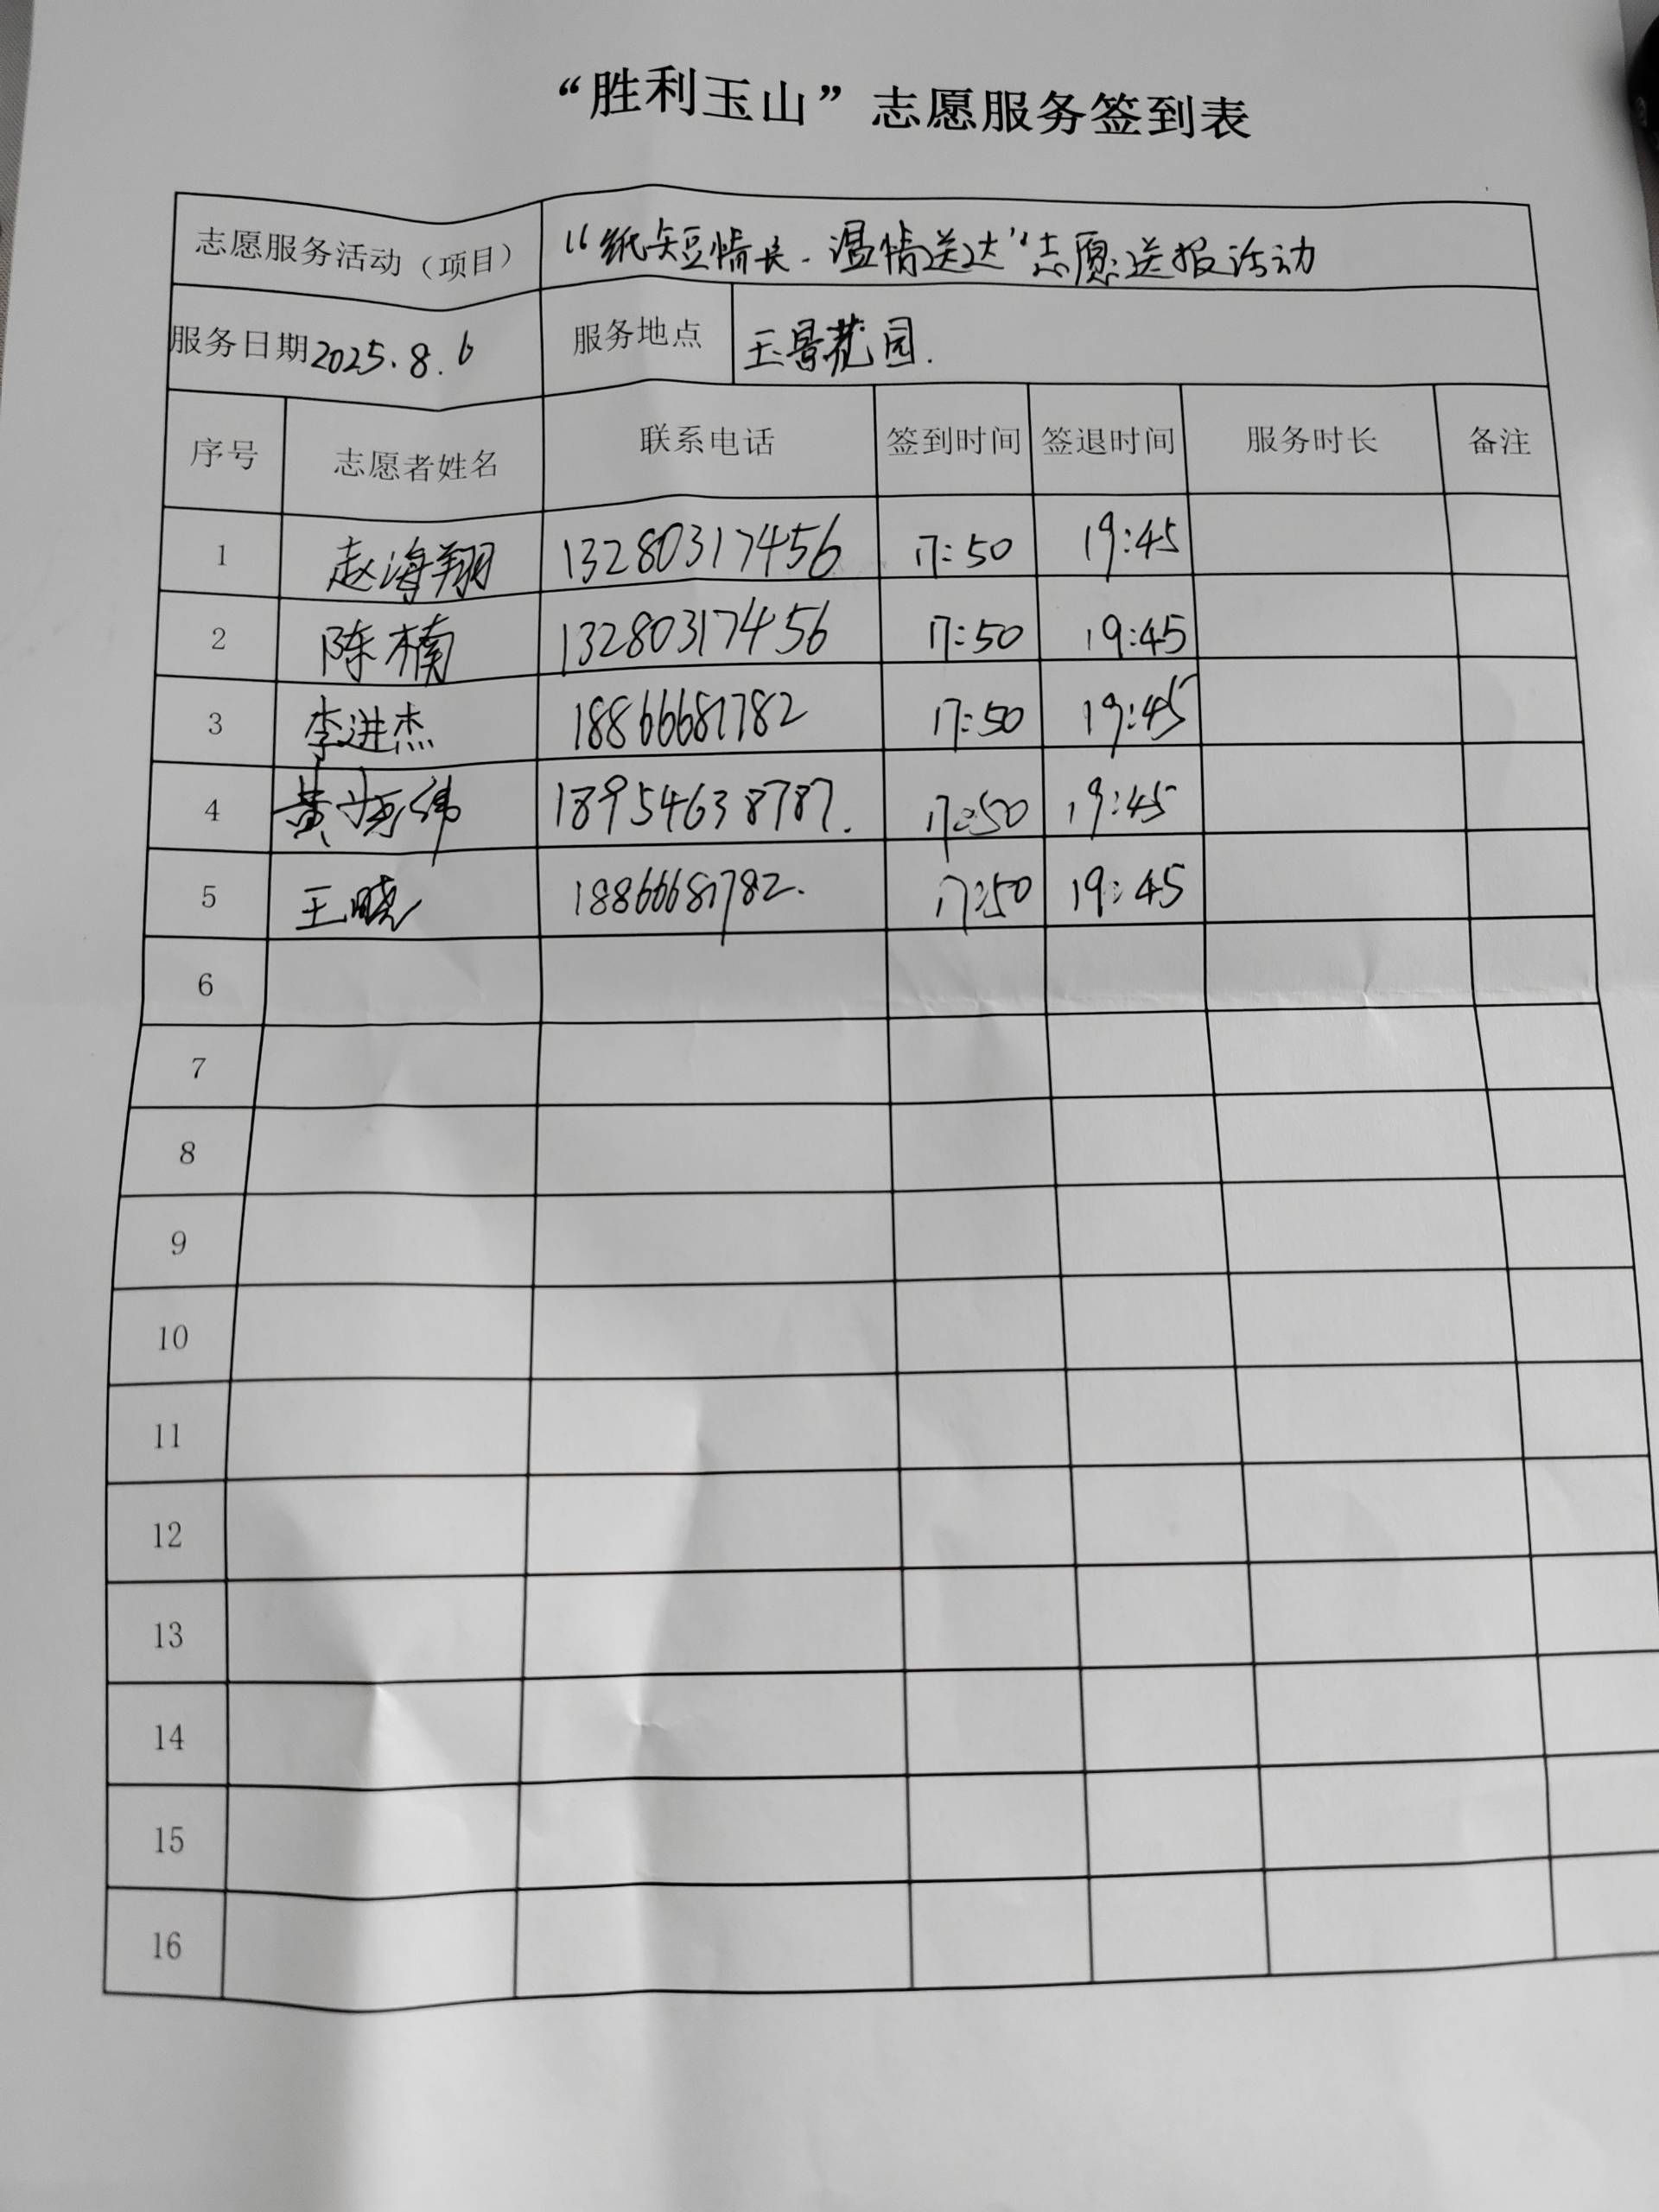 “胜利玉山”志愿服务签到表
志愿服务活动（项目） “纸短情长.温情送达”志愿送报活动
服务日期2025.8.6 服务地点 玉景花园.
序号 志愿者姓名 联系电话 签到时间 签退时间 服务时长 备注
1 赵海翔 13280317456 17:50 19:45
2 陈楠 13280317456 17:50 19:45
3 李进杰 18866681782 17:50 19:45
4 黄 18954638787. 17:50 19:45
5 王晓 18866681782. 17:50 19:45
6
7
8
9
10
11
12
13
14
15
16